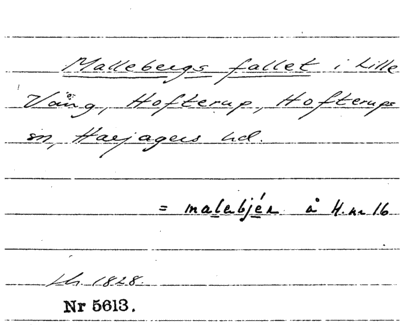 Mallebergs fallet i Lille
Väng, Hofterup, Hofterups
sn, Harjagers hd.
= malabjér å H. nr 16
1828.
Nr 5613.